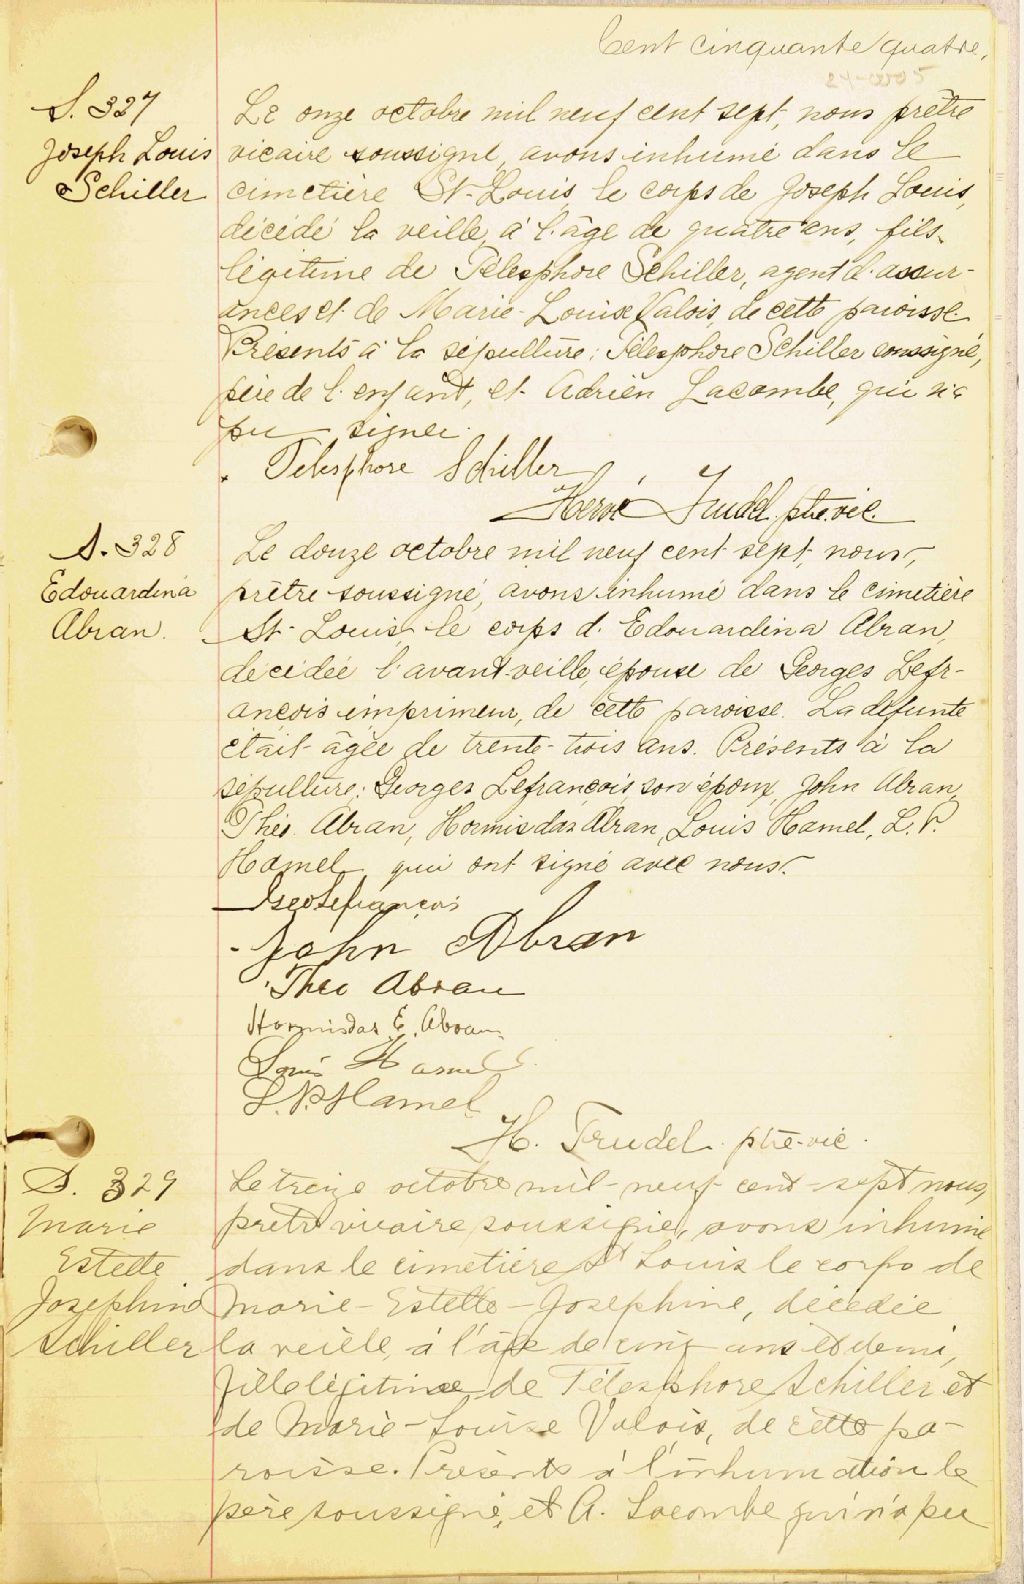 Cent cinquante quatre.
S. 327
Joseph Louis
Schiller
Le onze octobre mil neuf cent sept, nous prêtre
vicaire soussigné, avons inhumé dans le
cimetière St-Louis, le corps de Joseph Louis,
décédé la veille, à l'âge de quatre ans, fils
légitime de Télesphore Schiller, agent d'assur-
ances et de Marie-Louise Valois, de cette paroisse.
Présents à la sépulture: Télesphore Schiller soussigné,
père de l'enfant, et Adrien Lacombe, qui n'a
pu signer.
Telesphore Schiller
Hervé Trudel ptre. vic.
S. 328
Edouardina
Abran.
Le douze octobre mil neuf cent sept, nous,
prêtre soussigné, avons inhumé dans le cimetière
St-Louis, le corps d'Edouardina Abran,
décédée l'avant-veille, épouse de Georges Lefr-
ançois imprimeur, de cette paroisse. La défunte
était âgée de trente-trois ans. Présents à la
sépulture: Georges Lefrançois son époux, John Abran,
Théo. Abran, Hormisdas Abran, Louis Hamel, L. P.
Hamel, qui ont signé avec nous.
Geo Lefrançois
John Abran
Theo Abran
Hormisdas E. Abran
Louis Hamel
L. P. Hamel
H. Trudel ptre-vic.
S. 329
Marie
Estelle
Josephine
Schiller
Le treize octobre mil-neuf-cent-sept nous,
prêtre vicaire soussigné, avons inhumé
dans le cimetière St Louis le corps de
Marie-Estelle-Josephine, décédée
la veille, à l'âge de cinq ans et demi,
fille légitime de Télesphore Schiller et
de Marie-Louise Valois, de cette pa-
roisse. Présents à l'inhumation le
père soussigné, et A. Lacombe qui n'a pu